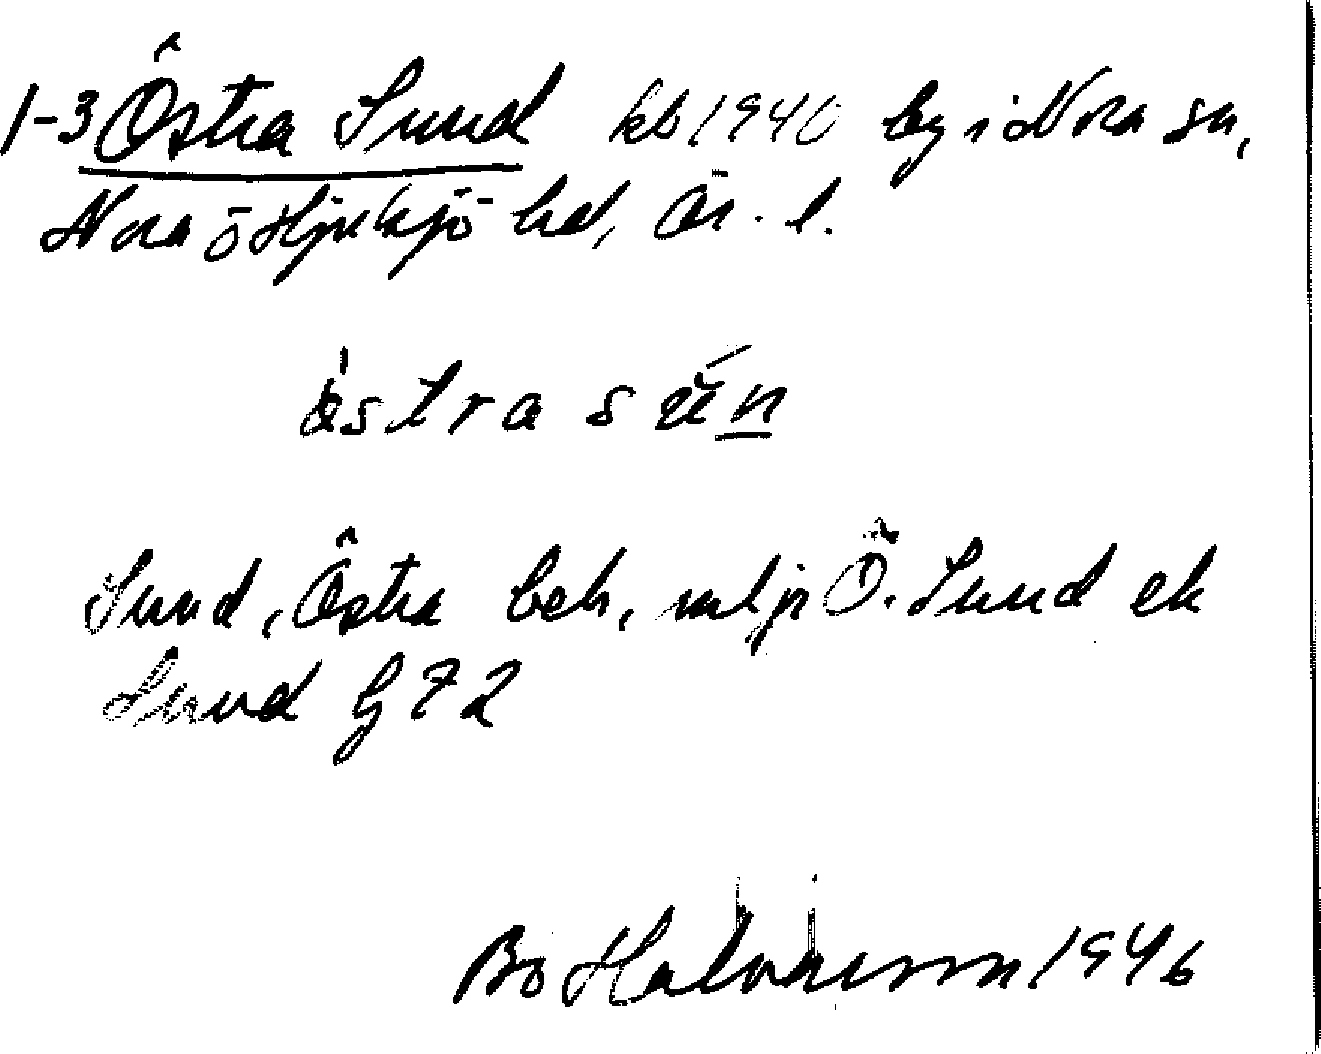 1-3 Östra Sund kb 1940 by i Nora sn,
Nora ö Hjulsjö hd, Ör. l.
östra sún
Sund, Östra beb, mljr Ö. Sund ek
Sund G72
Bo 1946